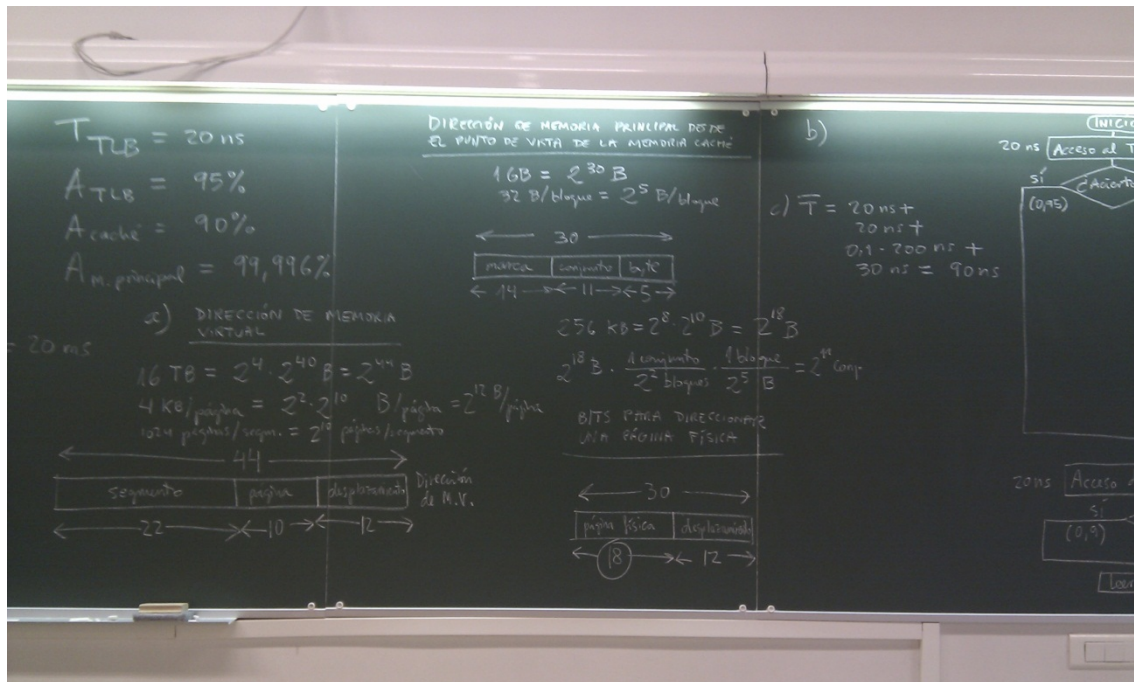 T TLB = 20 ns
A TLB = 95%
A caché = 90%
A m. principal = 99,996%
= 20 ns
a) DIRECCIÓN DE MEMORIA
VIRTUAL
16 TB = 2^4 · 2^40 B = 2^44 B
4 KB/página = 2^2 · 2^10 B/página = 2^12 B/página
1024 páginas/segm. = 2^10 págies/segmento
44
segmento página desplazamiento Dirección
de M.V.
22 10 12
DIRECCIÓN DE MEMORIA PRINCIPAL DESDE
EL PUNTO DE VISTA DE LA MEMORIA CACHÉ
1 GB = 2^30 B
32 B/bloque = 2^5 B/bloque
30
marca conjunto byte
14 11 5
256 KB = 2^8 · 2^10 B = 2^18 B
2^18 B · 1 conjunto / 2^2 bloques · 1 bloque / 2^5 B = 2^11 conj.
BITS PARA DIRECCIONAR
UNA PÁGINA FÍSICA
30
página física desplazamiento
18 12
b)
c) T̅ = 20 ns +
20 ns +
0,1 · 200 ns +
30 ns = 90 ns
INICIO
20 ns Acceso al T
sí ¿Acierto
(0,95)
20 ns Acceso a
sí
(0,9)